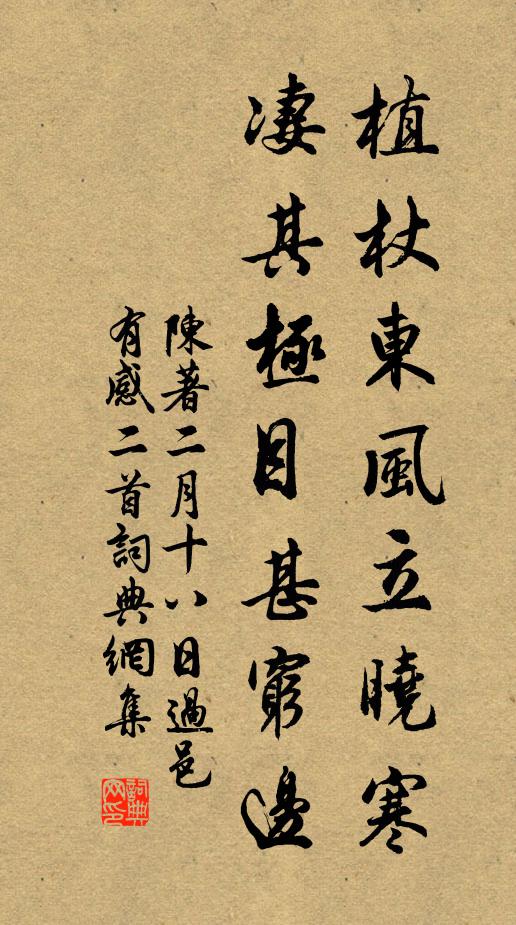 植杖東風立曉寒
凄其極目甚窮邊
陳著二月十八日過邑
有感二首詞典網集
詞典
网印